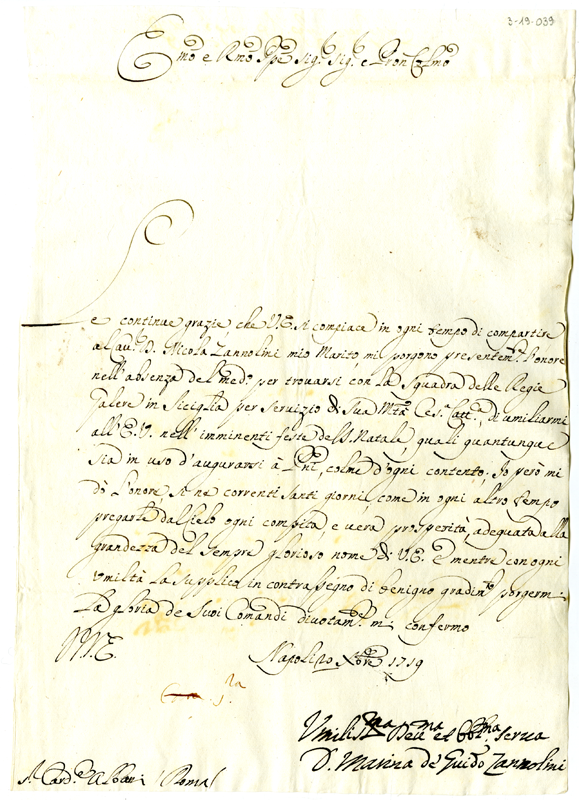 3-19-039
Em.o e Rmo Ppe Sig.r Sig.r e Pron Colmo
Le continue grazie che V.E. si compiace in ogni tempo di compartire
al Cau.r D. Nicola Zannolini mio Marito, mi porgono presentem.te l'onore
nell'absenza del med.o per trovarsi con la Squadra delle Regie
Galere in Siciglia per servizio di Sua M.tà Ces.a Catt.ca, di umiliarmi
all'E.V. nell'imminenti feste del S. Natale, quali quantunque
sia in uso d'augurarsi à Pni, colme d'ogni contento, Io però mi
dò l'onore, si ne correnti santi giorni, come in ogni altro tempo
pregarle dal Cielo ogni compita, e uera prosperità, adequata alla
grandezza del sempre glorioso nome di V.E. E mentre con ogni
umiltà la supplico, in contrassegno di benigno gradim.to porgermi
la gloria de Suoi Comandi divotam.te mi confermo
D.V.E.
Napoli Xbre 1719
Umiliss.ma Deu.ma et Obl.ma Serua
D. Marina de Guido Zannolini
S. Card. Albani Roma